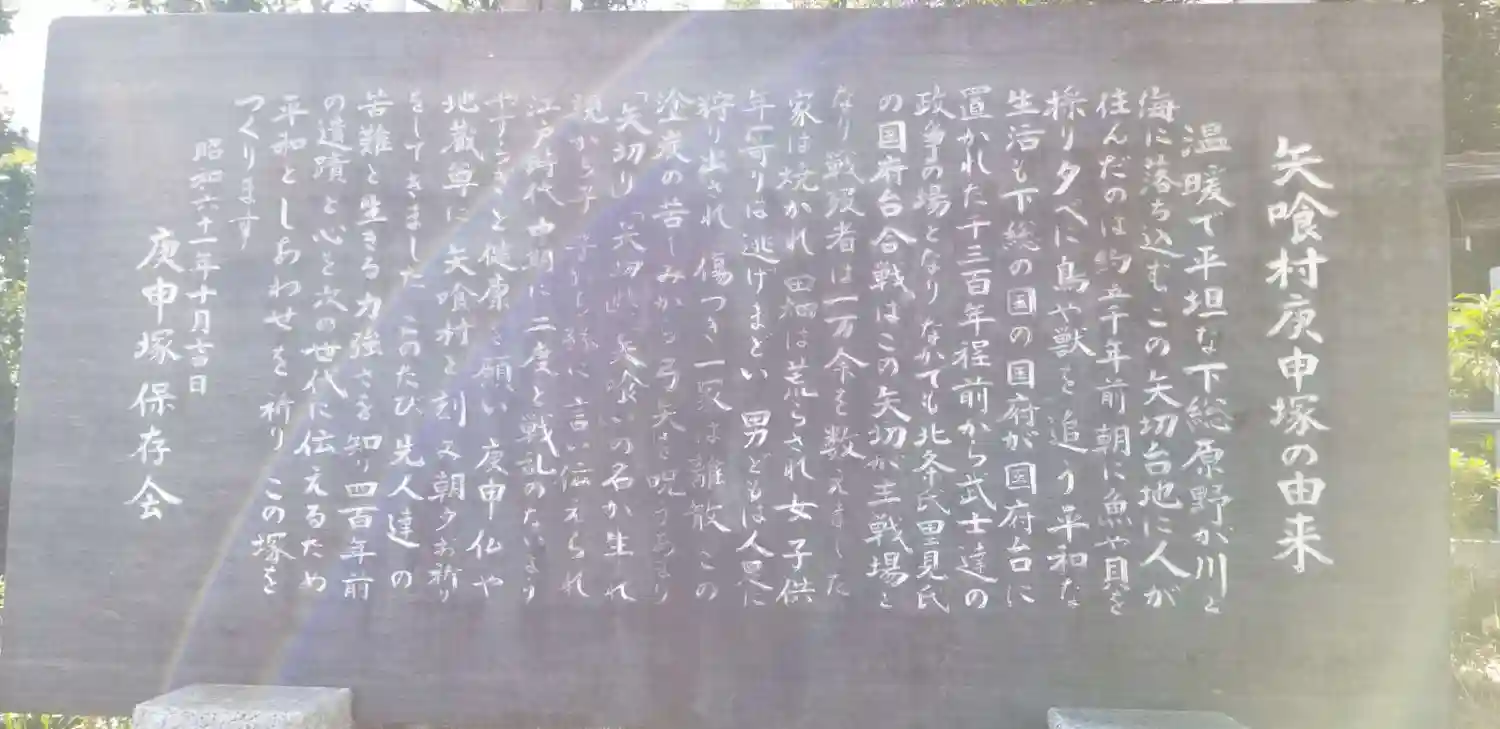 矢喰村庚申塚の由来
温暖で平坦な下総原野が川と
海に落ち込むこの矢切台地に人が
住んだのは約五千年前朝に魚や貝を
採り夕べに鳥や獣を追う平和な
生活も下総の国の国府が国府台に
置かれた千三百年程前から武士達の
政争の場となりなかでも北条氏里見氏
の国府台合戦はこの矢切が主戦場と
なり戦没者は一万余を数えました
家は焼かれ田畑は荒らされ女子供
年寄りは逃げまどい男どもは人足に
狩り出され傷つき一家は離散この
塗炭の苦しみから弓矢を呪うあまり
「矢切り」「矢切れ」「矢喰い」の名が生れ
親から子 子から孫に言い伝えられ
江戸時代中期に二度と戦乱のないより
やすらぎと健康を願い庚申仏や
地蔵尊に矢喰村と刻み朝夕お祈り
をしてきましたこのたび先人達の
苦難と生きる力強さを知り四百年前
の遺蹟と心を次の世代に伝えるため
平和としあわせを祈りこの塚を
つくります
昭和六十一年十月吉日
庚申塚保存会